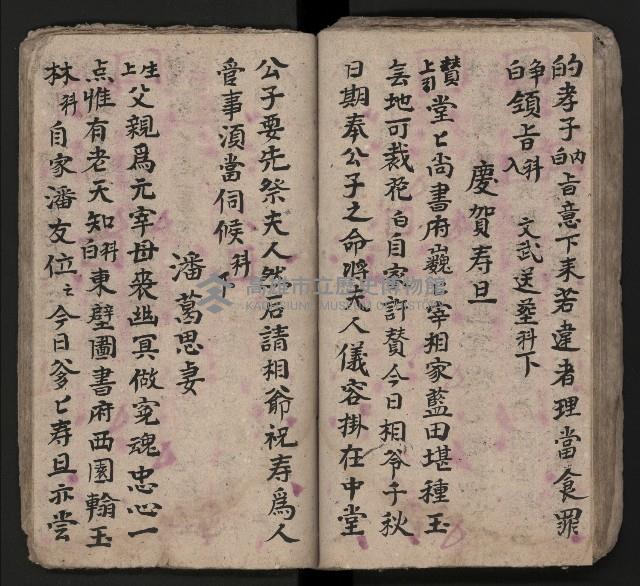 的孝子內白旨意下來若違者理當食罪
爭白領旨科入 文武送塟科下
慶賀寿旦
賛上引堂〻尚書府巍〻宰相家藍田堪種玉
无地可栽花白自家許賛今日相爷千秋
日期奉公子之命將夫人儀容掛在中堂
公子要先祭夫人然后請相爺祝寿爲人
管事須當伺候科
潘葛思妻
生上父親爲元宰母喪幽冥做冤魂忠心一
点惟有老天知科白東壁圖書府西園翰玉
林科自家潘友位〻今日爹〻寿旦亦尝
高雄市立歷史博物館
KAOHSIUNG MUSEUM OF HISTORY